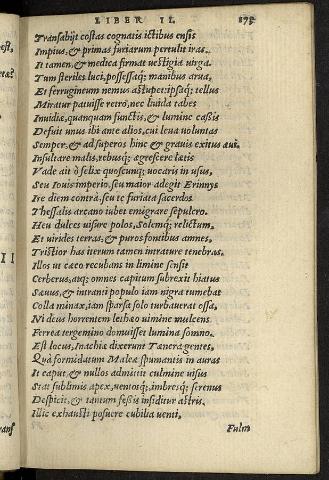 LIBER II. 175
Transabijt costas cognatis ictibus ensis
Impius, & primas furiarum pertulit iras.
It tamen, & medica firmat uestigia uirga.
Tum steriles luci, possessaq; manibus arua,
Et ferrugineum nemus astupet: ipsaq; tellus
Miratur patuisse retrò, nec liuida tabes
Inuidiæ, quanquam functis, & lumine cassis
Defuit unus ibi ante alios, cui leua uoluntas
Semper, & ad superos hinc & grauis exitus æui.
Insultare malis, rebusq; ægrescere lætis
Vade ait ô felix quoscunq; uocaris in usus,
Seu Iouis imperio, seu maior adegit Erinnys
Ire diem contrà, seu te furiata sacerdos
Thessalis arcano iubet emigrare sepulcro.
Heu dulces uisure polos, Solemq; relictum.
Et uirides terras, & puros fontibus amnes,
Tristior has iterum tamen intrature tenebras.
Illos ut cæco recubans in limine sensit
Cerberus, atq; omnes capitum subrexit hiatus
Sæuus, & intranti populo iam nigra tumebat
Colla minax, iam sparsa solo turbauerat ossa,
Ni deus horrentem lethæo uimine mulcens
Ferrea tergemino domuisset lumina somno.
Est locus, Inachiæ dixerunt Tænera gentes,
Quà formidatum Maleæ spumantis in auras
It caput, & nullos admittit culmine uisus
Stat sublimis apex, uentosq; imbresq; serenus
Despicit, & tantum fessis insiditur astris.
Illic exhausti posuere cubilia uenti,
Fulmi